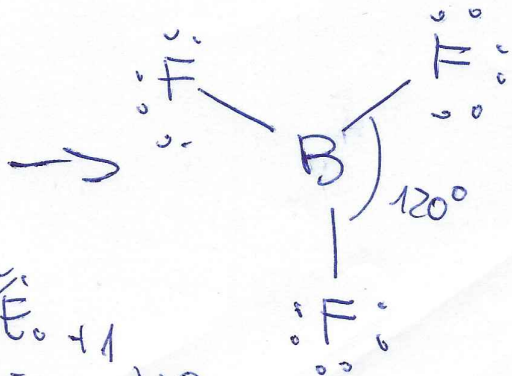 F F
→ B
120°
F
F +1